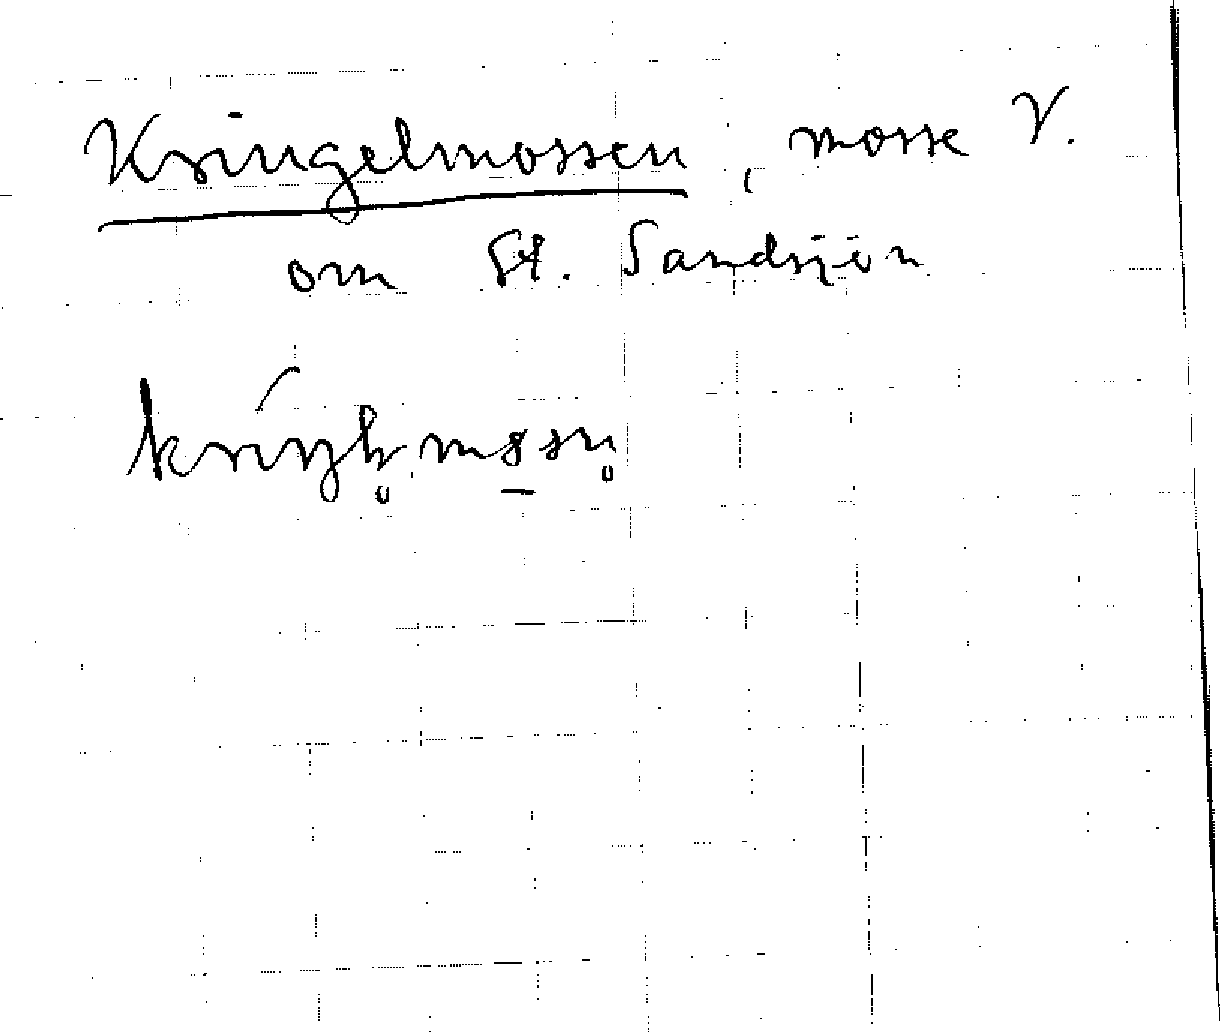 Kringelmossen, mosse V.
om St. Sandsjön